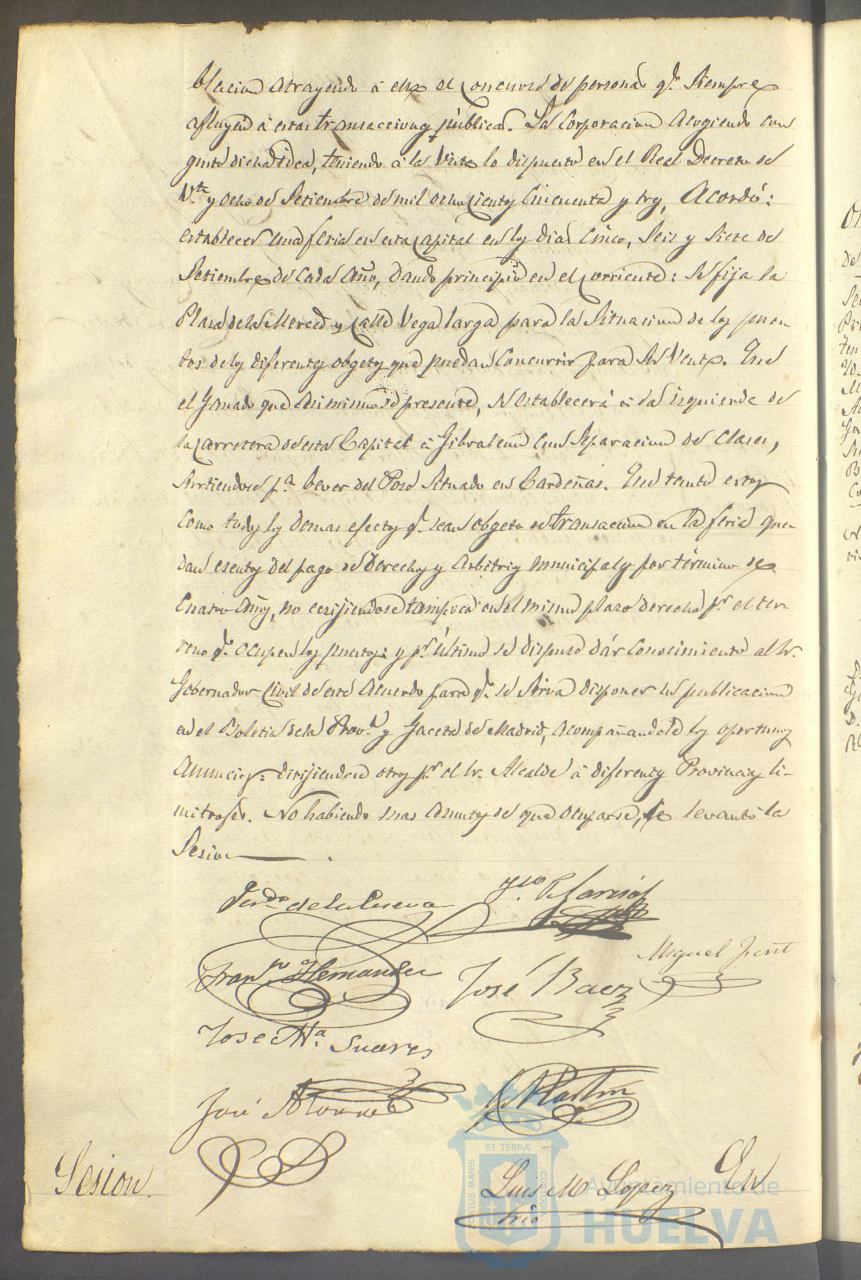 blacion atrayendo á ella el concurso de personas qe. siempre
afluyen á estas transacciones públicas. La Corporacion acogiendo con
gusto dicha idea, teniendo á la vista lo dispuesto en el Real Decreto de
Vte. y ocho de Setiembre de mil ochocientos cincuenta y tres, Acordó:
establecer una feria en esta Capital en los dias Cinco, Seis y Siete de
Setiembre de cada año, dando principio en el corriente: Se fija la
Plaza de la Merced y calle Vega larga para la situacion de los pues-
tos de los diferentes obgetos que puedan concurrir para su venta. Que
el ganado que asimismo se presente, se establecerá á la izquierda de
la carretera de esta Capital á Gibraleon con separacion de clases,
surtiendose pa. bever del Pozo situado en Cardeñas. Que tanto estos
como todos los demas efectos qe. sean obgeto de transacion en la feria que-
dan esentos del pago de derechos y arbitrios municipales por término de
cuatro años, no ecsijiendose tampoco en el mismo plazo derechos pr. el ter-
reno qe. ocupen los puestos: y pr. último se dispuso dár conocimiento al Sr.
Gobernador Civil de este Acuerdo para qe. se sirva disponer su publicacion
en el Boletin de la Prova. y Gaceta de Madrid, acompañandole los oportunos
anuncios: dirijiendose otros pr. el Sr. Alcalde á diferentes Provincias li-
mitrofes. No habiendo mas asuntos de que ocuparse, se levantó la
Sesion.
Ferdo. de la Cueva
Franco. Hernandez
José Baez
Miguel
Jose Ma. Suares
José Alonso
Martin
Sesion.
Luis M Lopez
Srio
En
ET TERRÆ
Ayuntamiento de
HUELVA